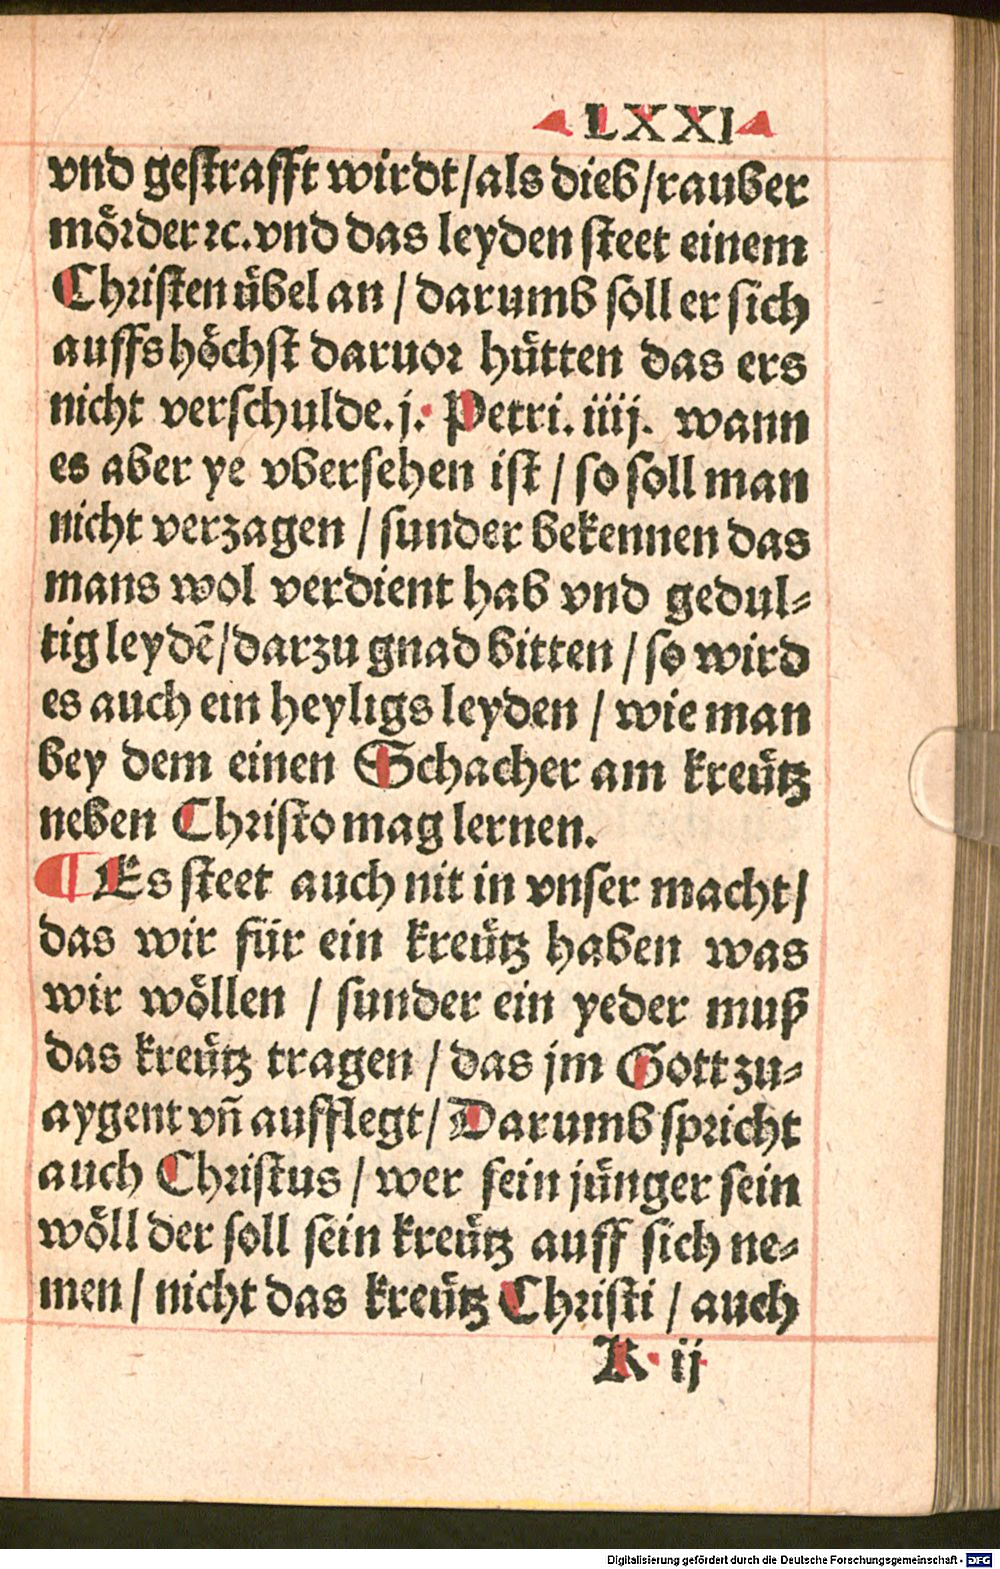 LXXI
vnd gestrafft wirdt/als dieb/rauber
mörder ꝛc.vnd das leyden steet einem
Christen übel an / darumb soll er sich
auffs höchst daruor hütten das ers
nicht verschulde.j. Petri. iiij. wann
es aber ye vbersehen ist / so soll man
nicht verzagen / sunder bekennen das
mans wol verdient hab vnd gedul⸗
tig leydē/darzu gnad bitten / so wird
es auch ein heyligs leyden / wie man
bey dem einen Schacher am kreütz
neben Christo mag lernen.
¶ Es steet auch nit in vnser macht/
das wir für ein kreütz haben was
wir wöllen / sunder ein yeder muß
das kreütz tragen / das jm Gott zu⸗
aygent vñ aufflegt/ Darumb spricht
auch Christus / wer sein jünger sein
wöll der soll sein kreütz auff sich ne⸗
men / nicht das kreütz Christi / auch
K ij
Digitalisierung gefördert durch die Deutsche Forschungsgemeinschaft - DFG